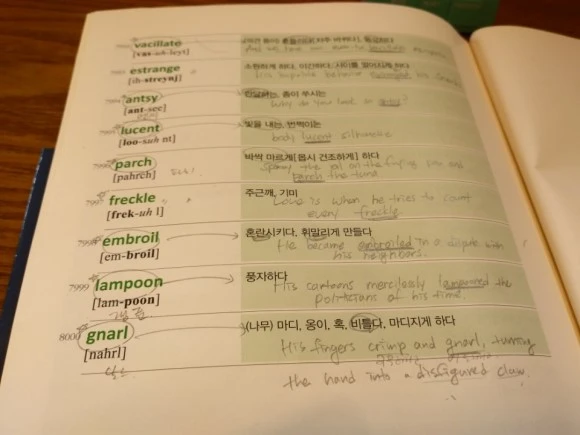 7992 vacillate
[vas-uh-leyt]
estrange
[ih-streynj]
소원하게 하다, 이간하다, 사이를 멀어지게 하다
His impulsive behavior estranged his
antsy
[ant-see]
안달하는, 좀이 쑤시는
Why do you look so antsy?
lucent
[loo-suh nt]
빛을 내는, 번쩍이는
body lucent silhouette
parch
[pahrch]
바싹 마르게[몹시 건조하게] 하다
the oil on the frying pan and
parch the tuna
freckle
[frek-uh l]
주근깨, 기미
Love is when he tries to count
every freckle
embroil
[em-broil]
혼란시키다, 휘말리게 만들다
He became embroiled in a dispute with
his neighbors.
7999 lampoon
[lam-poon]
풍자하다
His cartoons mercilessly lampooned the
politicians of his time.
8000 gnarl
[nahrl]
(나무) 마디, 옹이, 혹, 비틀다, 마디지게 하다
His fingers crimp and gnarl, turning
the hand into a disfigured claw.